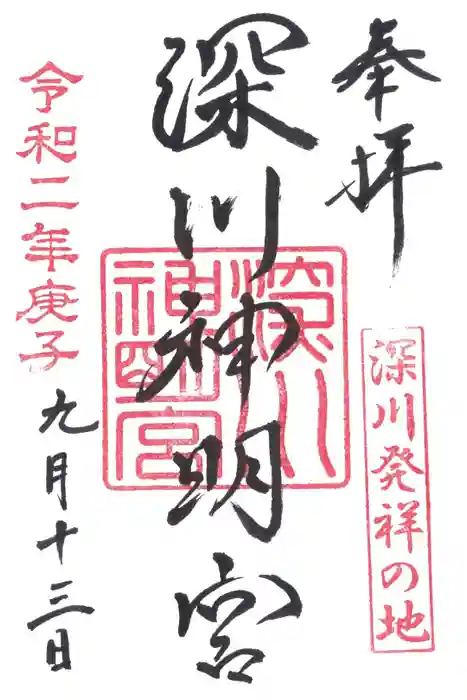 奉拝
深川発祥の地
深川神明宮
深川神明宮
令和二年庚子
九月十三日